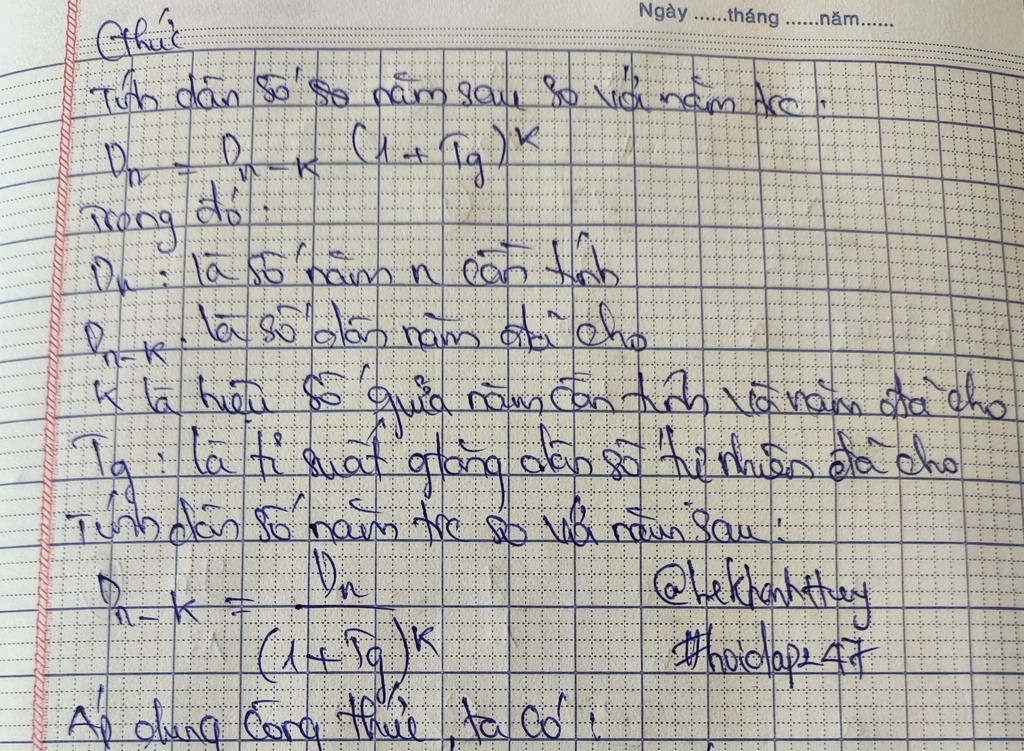 Ngày ......tháng ......năm......
Cthức
Tính dân số so năm sau so với năm trc :
Dn = Dn-K (1 + Tg)^K
Trong đó :
Dn : là số năm n cần tính
Dn-K : là số dân năm đã cho
K là hiệu số giữa năm cần tính và năm đã cho
Tg : là tỉ suất gtăng dân số tự nhiên đã cho
Tính dân số năm trc so với năm sau :
Dn-K = Dn / (1 + Tg)^K
@Lekhanhthuy
#hoidap247
Áp dụng công thức, ta có :